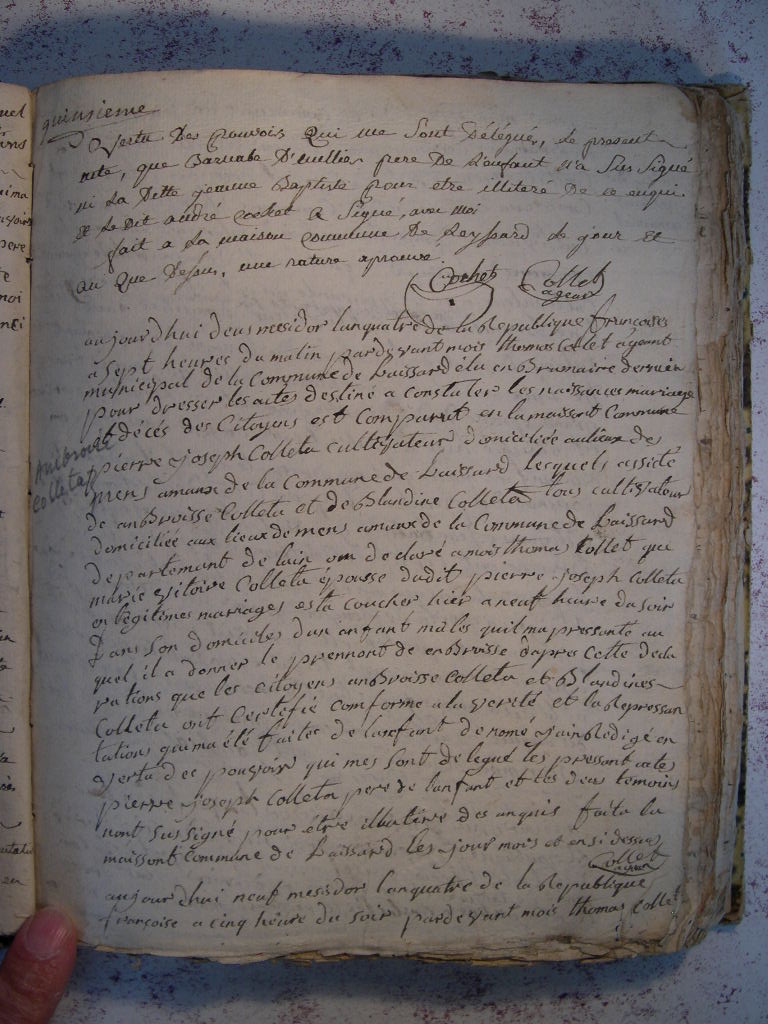 quinsieme
Vertu Des Pouvois Qui me Sont Délégué, Le present
acte, que Barnabe D'eullier pere De L'enfant n'a Sus Signé
ni La Ditte femme Baptiste pour etre illiteré De ce enqui.
& Le Dit andré Cochet a Signé, avec moi
fait a La maison Commune De Leyssard Le jour Et
an Que Dessus, une rature aprouvé.
Cochet Collet
agent
aujourdhui deus mesidor lanquatre de la Republique françoises
a Sept heures du matin pardevant mois thomas Collet agent
municipal de la Commune de Laissard élu en Brumaire dernier
pour dresser les actes destiné a Constater les naissances mariage
et décés des Citoyens est Comparut en la maissont Commune
pierre joseph Colleta cultivateur domiciliée au lieux de
mens amaux de la Commune de Laissard lesquels assisté
de anbroisse Colleta et de Blandine Colleta tous cultivateur
domiciliée aux lieux de mens amaux de la Commune de Laissard
departement de lain om de claré a mois thomas Collet que
marie vitoire Colleta épousse dudit pierre joseph Colleta
en légitimes mariages esta coucher hier a neuf heure du soir
dans son domiciles dun anfant males quil ma pressanté au
quel il a donner le prennont de enbroisse dapres Cette decla
rations que les Citoyens anbroisse Colleta et Blandines
Colleta ont Certefié comforme a la verité et la Repressan
tations qui ma été faites de lanfant de nomé jain Redigé en
vertu des pouvoir qui mes sont delegué les pressant actes
pierre joseph Colleta pere de lanfant et les deus temoins
nont sus signé pour être illutire des anquis faita la
maissont Commune de Laissard les jour mois et an si dessus
Collet
agent
aujourdhui neuf mesidor lanquatre de la Republique
françoise a cinq heure du soir pardevant mois thomas Collet
Ambroise
Colletaz